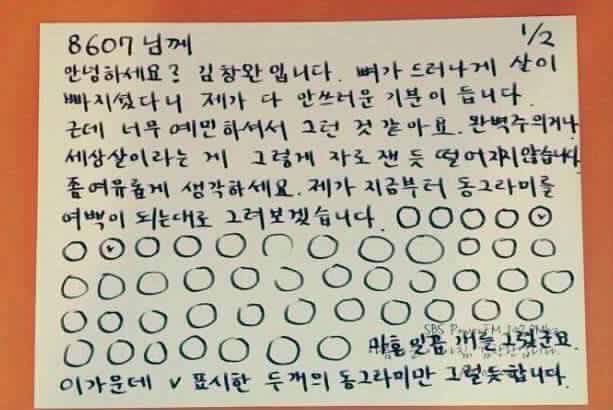 8607님께 1/2
안녕하세요? 김창완입니다. 뼈가 드러나게 살이
빠지셨다니 제가 다 안쓰러운 기분이 듭니다.
근데 너무 예민하셔서 그런 것 같아요. 완벽주의거나
세상살이라는 게 그렇게 자로 잰 듯 떨어지지 않습니다.
좀 여유롭게 생각하세요. 제가 지금부터 동그라미를
여백이 되는대로 그려보겠습니다.
SBS PowerFM 107.7MHz
마흔 일곱 개를 그렸군요.
이 가운데 v 표시한 두 개의 동그라미만 그럴듯합니다.